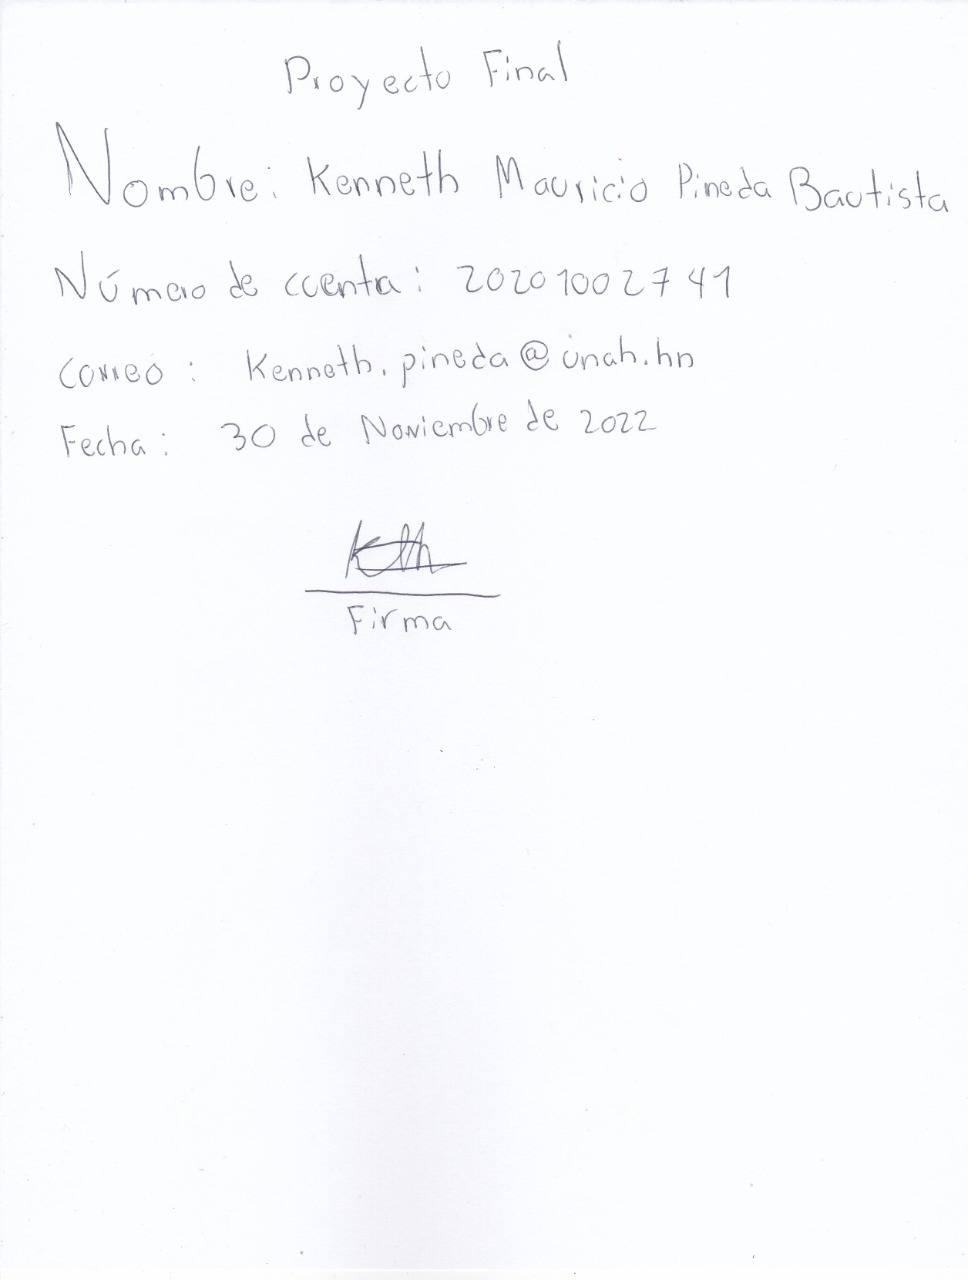 Proyecto Final
Nombre: Kenneth Mauricio Pineda Bautista
Número de cuenta: 20201002741
Correo: Kenneth.pineda@unah.hn
Fecha: 30 de Noviembre de 2022
Firma